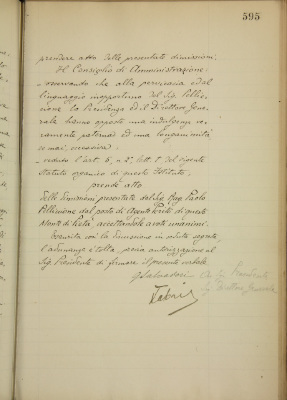 595
prendere atto delle presentate dimissioni.
Il Consiglio di Amministrazione:
- osservando che alla pervicacia ed al
linguaggio inopportuno del Sig. Pelli-
cione la Presidenza ed il Direttore Gene-
rale hanno opposto una indulgenza ve-
ramente paterna ed una longanimità
ormai eccessiva;
- veduto l'art. 6, n. 2, lett. del vigente
Statuto organico di questo Istituto;
prende atto
delle dimissioni presentate dal Sig. Rag. Paolo
Pellicione dal posto di di questo
Monte di Pietà accettandole a voti unanimi.
Esaurita così la discussione in seduta segreta,
l'adunanza è tolta, previa autorizzazione al
Sig. Presidente di firmare il presente verbale.